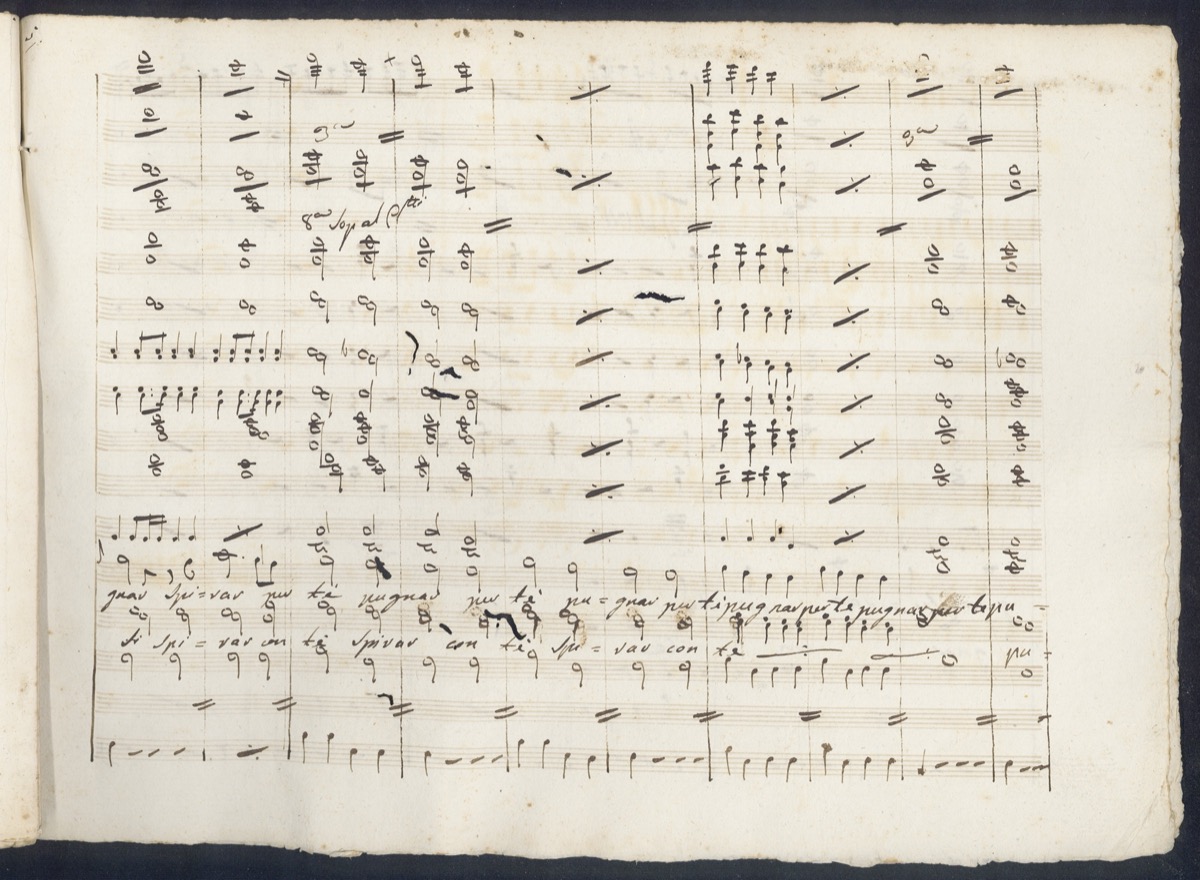 8ª
8ª
8ª sop al
gnar spi=rar per te pugnar per te pu=gnar per te pugnar per te pugnar per te pu=
di spi=rar con te spirar con te spi=rar con te pu=